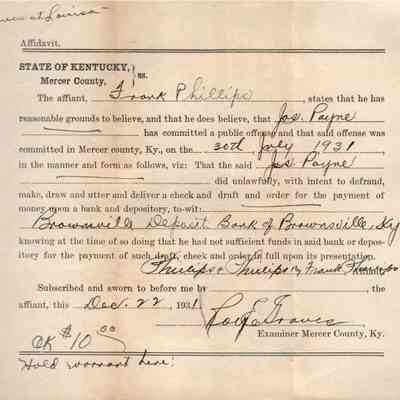 at Louisa
Affidavit.
STATE OF KENTUCKY, } ss.
Mercer County,
The affiant, Frank Phillips, states that he has
reasonable grounds to believe, and that he does believe, that Jos. Payne
has committed a public offense and that said offense was
committed in Mercer county, Ky., on the 30th July 1931
in the manner and form as follows, viz: That the said Jos Payne
did unlawfully, with intent to defraud,
make, draw and utter and deliver a check and draft and order for the payment of
money upon a bank and depository, to-wit:
Brownsville Deposit Bank of Brownsville, Ky
knowing at the time of so doing that he had not sufficient funds in said bank or depos-
itory for the payment of such draft, check and order in full upon its presentation.
Phillips & Phillips by Frank Phillips
Subscribed and sworn to before me by , the
affiant, this Dec. 22, 1931.
Graves
Examiner Mercer County, Ky.
CK $10.00
Hold warrant here.